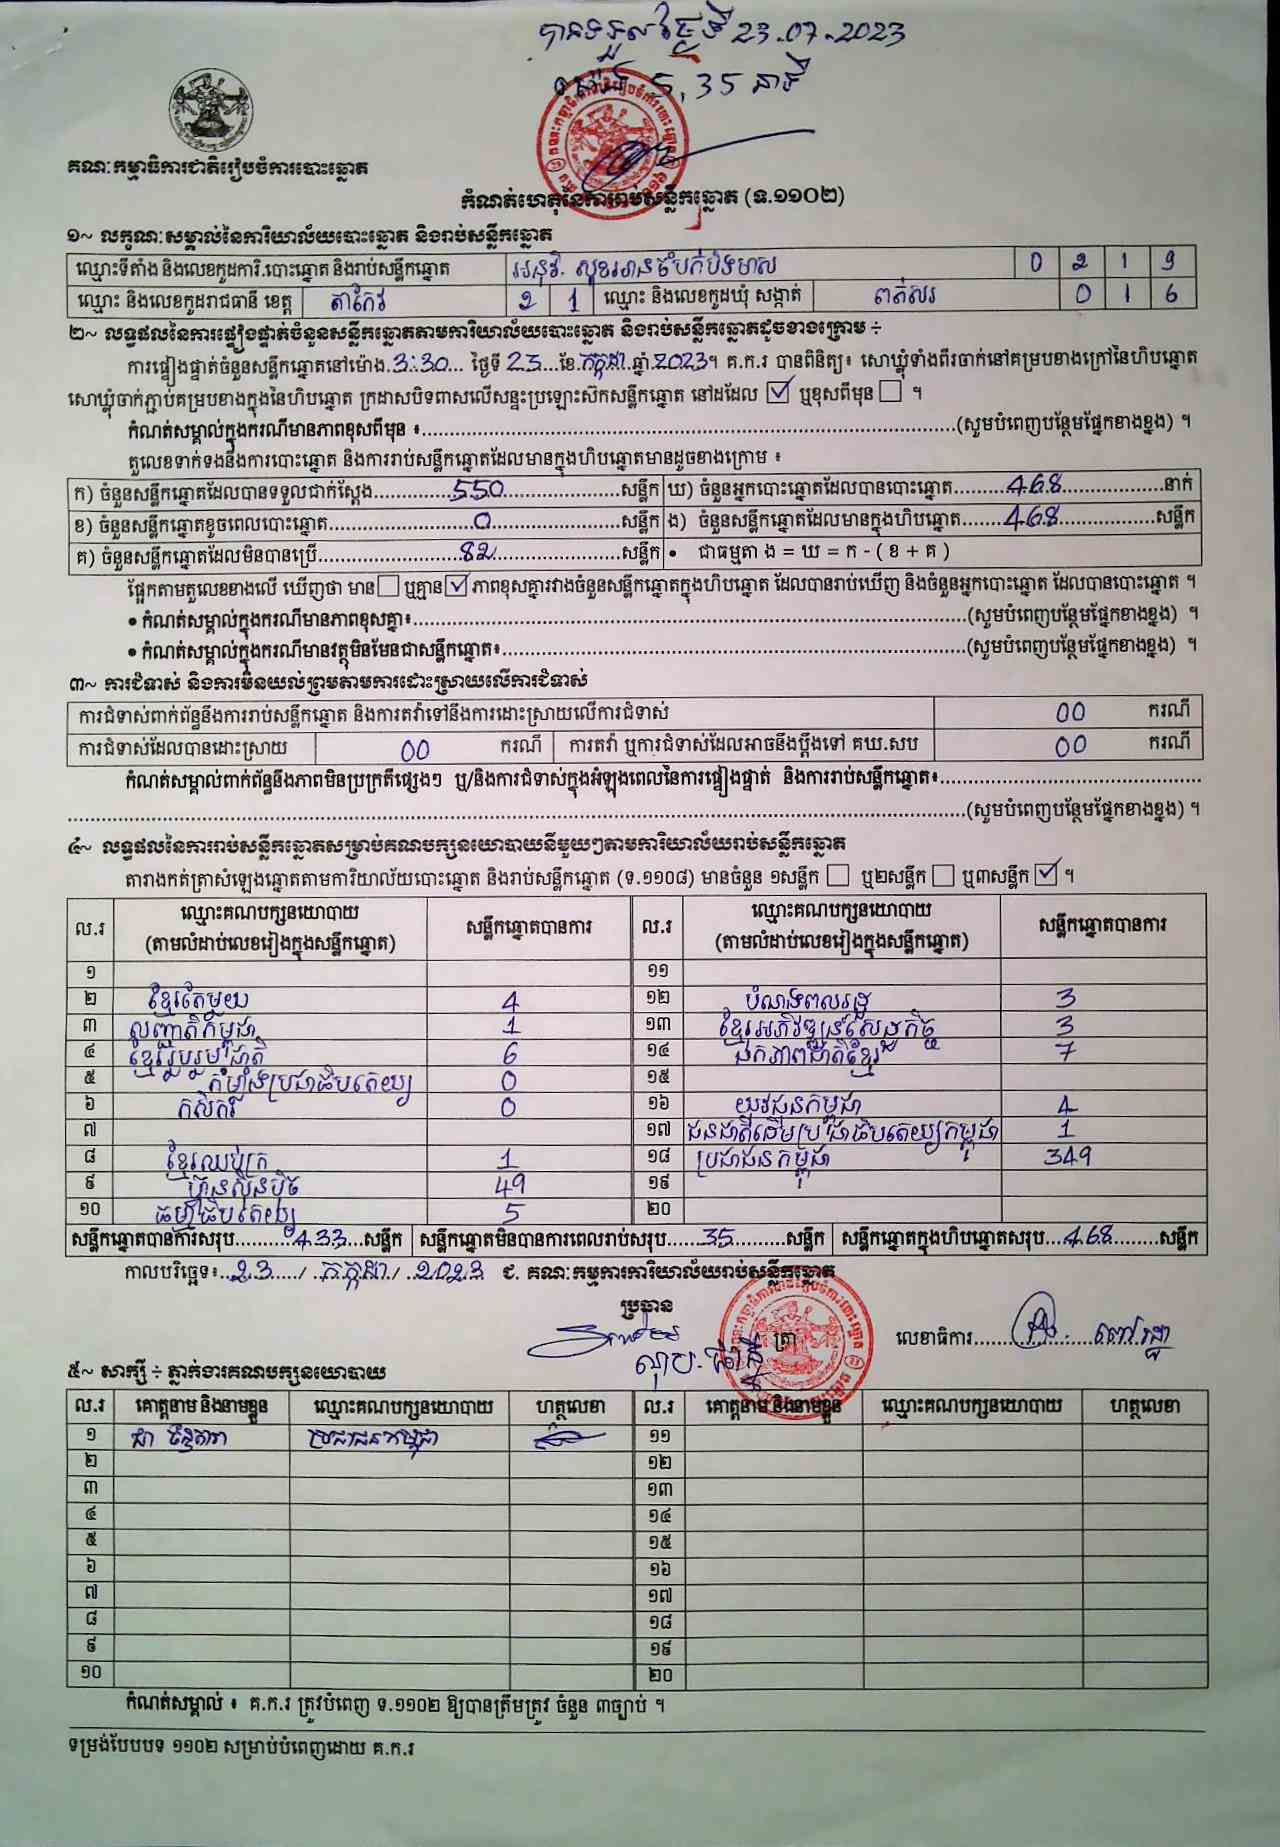 បានទទួលថ្ងៃទី 23.07.2023
ម៉ោង 5,35 នាទី
គណៈកម្មាធិការជាតិរៀបចំការបោះឆ្នោត
កំណត់ហេតុនៃការរាប់សន្លឹកឆ្នោត (ទ.១១០២)
១~ លក្ខណៈសម្គាល់នៃការិយាល័យបោះឆ្នោត និងរាប់សន្លឹកឆ្នោត
ឈ្មោះទីតាំង និងលេខកូដការិ.បោះឆ្នោត និងរាប់សន្លឹកឆ្នោត 0 2 1 9
ឈ្មោះ និងលេខកូដរាជធានី ខេត្ត តាកែវ 2 1 ឈ្មោះ និងលេខកូដឃុំ សង្កាត់ ពត់សរ 0 1 6
២~ លទ្ធផលនៃការផ្ទៀងផ្ទាត់ចំនួនសន្លឹកឆ្នោតតាមការិយាល័យបោះឆ្នោត និងរាប់សន្លឹកឆ្នោតដូចខាងក្រោម ÷
ការផ្ទៀងផ្ទាត់ចំនួនសន្លឹកឆ្នោតនៅម៉ោង.3:30... ថ្ងៃទី 23...ខែ.កក្កដា.ឆ្នាំ.2023។ គ.ក.រ បានពិនិត្យ៖ សោឃ្លុំទាំងពីរចាក់នៅគម្របខាងក្រៅនៃហិបឆ្នោត
សោឃ្លុំចាក់ភ្ជាប់គម្របខាងក្នុងនៃហិបឆ្នោត ក្រដាសបិទពាសលើសន្ទះប្រឡោះស៊កសន្លឹកឆ្នោត នៅដដែល ☑ ឬខុសពីមុន ☐ ។
កំណត់សម្គាល់ក្នុងករណីមានភាពខុសពីមុន ៖..........(សូមបំពេញបន្ថែមផ្នែកខាងខ្នង) ។
តួលេខទាក់ទងនឹងការបោះឆ្នោត និងការរាប់សន្លឹកឆ្នោតដែលមានក្នុងហិបឆ្នោតមានដូចខាងក្រោម ៖
ក) ចំនួនសន្លឹកឆ្នោតដែលបានទទួលជាក់ស្តែង..........550..........សន្លឹក ឃ) ចំនួនអ្នកបោះឆ្នោតដែលបានបោះឆ្នោត..........468..........នាក់
ខ) ចំនួនសន្លឹកឆ្នោតខូចពេលបោះឆ្នោត..........0..........សន្លឹក ង) ចំនួនសន្លឹកឆ្នោតដែលមានក្នុងហិបឆ្នោត..........468..........សន្លឹក
គ) ចំនួនសន្លឹកឆ្នោតដែលមិនបានប្រើ..........82..........សន្លឹក • ជាធម្មតា ង = ឃ = ក - ( ខ + គ )
ផ្អែកតាមតួលេខខាងលើ ឃើញថា មាន ☐ ឬគ្មាន ☑ ភាពខុសគ្នារវាងចំនួនសន្លឹកឆ្នោតក្នុងហិបឆ្នោត ដែលបានរាប់ឃើញ និងចំនួនអ្នកបោះឆ្នោត ដែលបានបោះឆ្នោត ។
• កំណត់សម្គាល់ក្នុងករណីមានភាពខុសគ្នា៖..........(សូមបំពេញបន្ថែមផ្នែកខាងខ្នង) ។
• កំណត់សម្គាល់ក្នុងករណីមានវត្ថុមិនមែនជាសន្លឹកឆ្នោត៖..........(សូមបំពេញបន្ថែមផ្នែកខាងខ្នង) ។
៣~ ការជំទាស់ និងការមិនយល់ព្រមតាមការដោះស្រាយលើការជំទាស់
ការជំទាស់ពាក់ព័ន្ធនឹងការរាប់សន្លឹកឆ្នោត និងការតវ៉ាទៅនឹងការដោះស្រាយលើការជំទាស់ 00 ករណី
ការជំទាស់ដែលបានដោះស្រាយ 00 ករណី ការតវ៉ា ឬការជំទាស់ដែលអាចនឹងប្តឹងទៅ គឃ.សប 00 ករណី
កំណត់សម្គាល់ពាក់ព័ន្ធនឹងភាពមិនប្រក្រតីផ្សេងៗ ឬ/និងការជំទាស់ក្នុងអំឡុងពេលនៃការផ្ទៀងផ្ទាត់ និងការរាប់សន្លឹកឆ្នោត៖..........
..........(សូមបំពេញបន្ថែមផ្នែកខាងខ្នង) ។
៤~ លទ្ធផលនៃការរាប់សន្លឹកឆ្នោតសម្រាប់គណបក្សនយោបាយនីមួយៗតាមការិយាល័យរាប់សន្លឹកឆ្នោត
តារាងកត់ត្រាសំឡេងឆ្នោតតាមការិយាល័យបោះឆ្នោត និងរាប់សន្លឹកឆ្នោត (ទ.១១០៨) មានចំនួន ១សន្លឹក ☐ ឬ២សន្លឹក ☐ ឬ៣សន្លឹក ☑ ។
ល.រ ឈ្មោះគណបក្សនយោបាយ (តាមលំដាប់លេខរៀងក្នុងសន្លឹកឆ្នោត) សន្លឹកឆ្នោតបានការ ល.រ ឈ្មោះគណបក្សនយោបាយ (តាមលំដាប់លេខរៀងក្នុងសន្លឹកឆ្នោត) សន្លឹកឆ្នោតបានការ
១ ១១
២ ខ្មែរតែមួយ 4 ១២ បំណងពលរដ្ឋ 3
៣ សញ្ជាតិកម្ពុជា 1 ១៣ ខ្មែរអភិវឌ្ឍន៍សេដ្ឋកិច្ច 3
៤ ខ្មែររួបរួមជាតិ 6 ១៤ ឯកភាពជាតិខ្មែរ 7
៥ កម្លាំងប្រជាធិបតេយ្យ 0 ១៥
៦ កសិករ 0 ១៦ យុវជនកម្ពុជា 4
៧ ១៧ ជនជាតិដើមប្រជាធិបតេយ្យកម្ពុជា 1
៨ ខ្មែរឈប់ក្រ 1 ១៨ ប្រជាជនកម្ពុជា 349
៩ ហ្វ៊ុនស៊ិនប៉ិច 49 ១៩
១០ ធម្មាធិបតេយ្យ 5 ២០
សន្លឹកឆ្នោតបានការសរុប..........433...សន្លឹក សន្លឹកឆ្នោតមិនបានការពេលរាប់សរុប.....35.........សន្លឹក សន្លឹកឆ្នោតក្នុងហិបឆ្នោតសរុប...468........សន្លឹក
កាលបរិច្ឆេទ៖..23...../..កក្កដា./..2023 ជ. គណៈកម្មការការិយាល័យរាប់សន្លឹកឆ្នោត
ប្រធាន
ត្រា
លេខាធិការ
៥~ សាក្សី ÷ ភ្នាក់ងារគណបក្សនយោបាយ
ល.រ គោត្តនាម និងនាមខ្លួន ឈ្មោះគណបក្សនយោបាយ ហត្ថលេខា ល.រ គោត្តនាម និងនាមខ្លួន ឈ្មោះគណបក្សនយោបាយ ហត្ថលេខា
១ ប្រជាជនកម្ពុជា ១១
២ ១២
៣ ១៣
៤ ១៤
៥ ១៥
៦ ១៦
៧ ១៧
៨ ១៨
៩ ១៩
១០ ២០
កំណត់សម្គាល់ ៖ គ.ក.រ ត្រូវបំពេញ ទ.១១០២ ឱ្យបានត្រឹមត្រូវ ចំនួន ៣ច្បាប់ ។
ទម្រង់បែបបទ ១១០២ សម្រាប់បំពេញដោយ គ.ក.រ